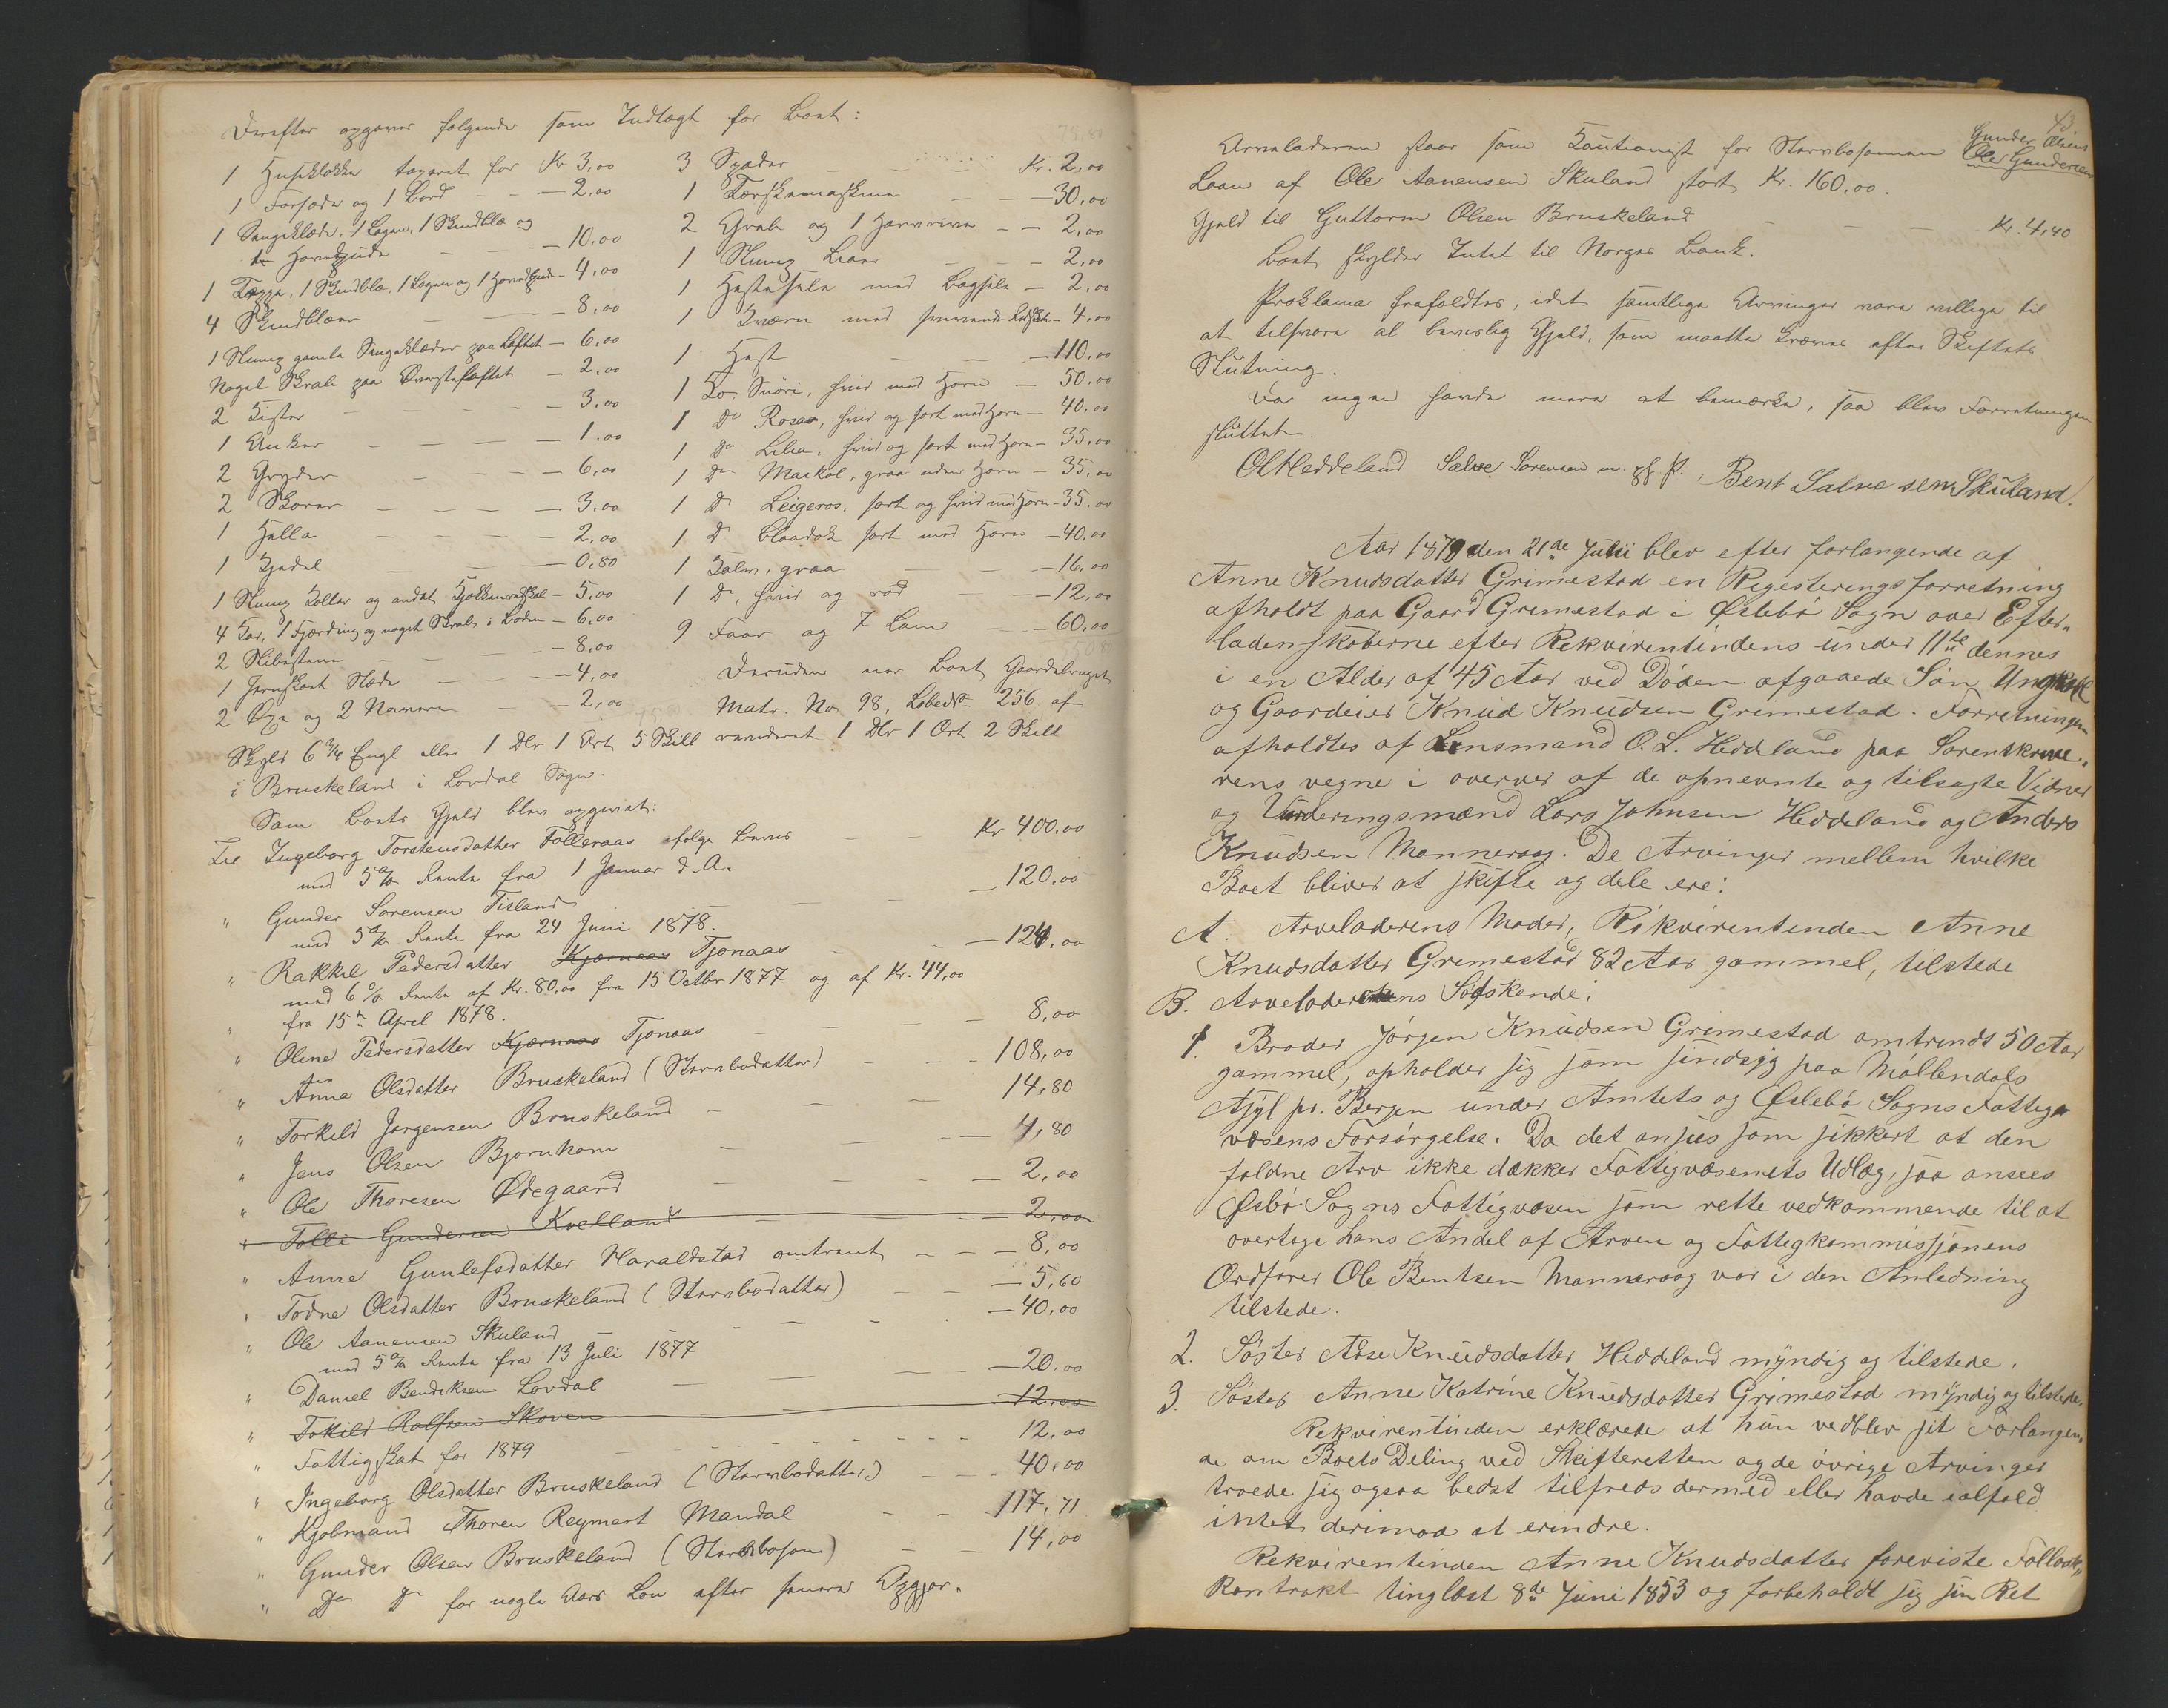 Derefter opgaves følgende som Indtægt for Boet:
1 Huseklokke taxeret for Kr 3,00
1 og 1 Bord — 2,00
1 Sengeklæde, 1 Lagen, 1 Skindblæ og
1 Hovedpude — 10,00
1 Teppe, 1 Skindblæ, 1 Lagen og 1 Hovedpude — 4,00
4 Skindblæer — 8,00
1 Slump gamle Sengeklæder paa Loftet — 6,00
Noget Skrab paa Øversteloftet — 2,00
2 Kister — 3,00
1 Anker — 1,00
2 Gryder — 6,00
2 — 3,00
1 Helle — 2,00
1 Kjedel — 0,80
1 Slump Koller og andet Kjøkkenredskab — 5,00
4 Kar, 1 Fjærding og noget Skrab i Boden — 6,00
2 — 8,00
1 Jernskoet Slæde — 4,00
2 Øxe og 2 Navere — 2,00
3 Spader — Kr. 2,00
1 Tærskemaskine — 30,00
2 Greb og 1 — 2,00
1 Slump Liaer — 2,00
1 Hestesele med Bogsele — 2,00
1 Kværn med Redskab — 4,00
1 Hest — 110,00
1 Ko, Snöri, hvid med Horn — 50,00
1 Do Rosa, hvid og sort med Horn — 40,00
1 Do Lilia, hvid og sort med Horn — 35,00
1 Do Maikol, graa uden Horn — 35,00
1 Do Leigeros, sort og hvid med Horn — 35,00
1 Do Blaadok sort med Horn — 40,00
1 Kalv, graa — 16,00
1 Do, hvid og rød — 12,00
9 Faar og 7 Lam — 60,00
Desuden eier Boet Gaardebruget
Matr. No 98, Løbe No 256 af
Skyld 6 3/4 Engl eller 1 Dlr 1 Ort 5 Skill revideret 1 Dlr 1 Ort 2 Skill
i Bruskeland i Løvdal Sogn.
Som Boets Gjeld blev opgivet:
Til Ingeborg Torstensdatter Folleraas ifølge Bevis — Kr 400,00
med 5% Rente fra 1 Januar d. A.
" Gunder Sørensen Tisland — 120,00
med 5% Rente fra 24 Juni 1878.
" Rakkel Pedersdatter Kjærnaas Tjonaas — 124,00
med 6% Rente af Kr. 80,00 fra 15 Octbr 1877 og af Kr. 44,00
fra 15de April 1878.
" Oline Pedersdatter Kjærnaas Tjonaas — 8,00
" Anna Olsdatter Bruskeland (Stervbodatter) — 108,00
" Torkild Jørgensen Bruskeland — 14,80
" Jens Olsen Bjørnhom — 4,80
" Ole Thoresen Ødegaard — 2,00
" Tolli Gundersen Kvelland — 2,00
" Anne Gunlefsdatter Haraldstad omtrent — 8,00
" Todne Olsdatter Bruskeland (Stervbodatter) — 5,60
" Ole Aanensen Skuland — 40,00
med 5% Rente fra 13 Juli 1877
" Daniel Bendiksen Lovdal — 20,00
" Tokild Rolfsen Skoven — 12,00
" Fattigskat for 1879 — 12,00
" Ingeborg Olsdatter Bruskeland (Stervbodatter) — 40,00
" Kjøbmand Thoren Reymert Mandal — 117,71
" Gunder Olsen Bruskeland (Stervbosøn) — 14,00
" Do Do for nogle Aars Løn efter senere Opgjør.
43
Arveladeren staar som Kautionist for Stervbosønnen Gunder Olsens Ole Gundersens
Laan af Ole Aanensen Skuland stort Kr. 160,00.
Gjeld til Guttorm Olsen Bruskeland — Kr. 4,40
Boet skylder Intet til Norges Bank.
Proklama frafaldtes, idet samtlige Arvinger vare villige til
at tilsvare al beviislig Gjeld, som maatte kræves efter Skiftets
Slutning.
Da ingen havde mere at bemærke, saa blev Forretningen
sluttet.
OLHeddeland Salve Sørensen m. p. P. Bent Salvesen Skuland.
Aar 1879 den 21de Juli blev efter forlangende af
Anne Knudsdatter Grimestad en Regesteringsforretning
afholdt paa Gaard Grimestad i Øslebö Sogn over Efter-
ladenskaberne efter Rekvirentindens under 11te dennes
i en Alder af 45 Aar ved Döden afgaaede Sön, Ungkarl
og Gaardeier Knud Knudsen Grimestad. Forretningen
afholdtes af Lensmand O. L. Heddeland paa Sorenskrive-
rens vegne i overvær af de opnevnte og tilsagte Vidner
og Vurderingsmænd Lars Johnsen Heddeland og Anders
Knudsen Monneraag. De Arvinger mellem hvilke
Boet bliver at skifte og dele ere:
A. Arveladerens Moder, Rekvirentinden Anne
Knudsdatter Gremestad 82 Aar gammel, tilstede
B. Arveladerens Södskende:
1. Broder Jörgen Knudsen Grimestad omtrendt 50 Aar
gammel, opholder sig som sindsyg paa Möllendals
Asyl pr. Bergen under Amtets og Øslebö Sogns Fattig-
væsens Forsörgelse. Da det ansees som sikkert at den
faldne Arv ikke dækker Fattigvæsenets Udlæg, saa ansees
Øslebö Sogns Fattigvæsen som rette vedkommende til at
overtage hans Andel af Arven og Fattigkommissjonens
Ordförer Ole Bentsen Monneraag var i den Anledning
tilstede.
2. Söster Aase Knudsdatter Heddeland myndig og tilstede.
3. Söster Anne Katrine Knudsdatter Grimestad myndig og tilstede.
Rekvirentinden erklærede at hun vedblev sit Forlangen-
de om Boets Deling ved Skifteretten og de övrige Arvinger
troede sig ogsaa bedst tilfreds dermed eller havde ialfald
intet derimod at erindre.
Rekvirentinden Anne Knudsdatter foreviste Follaads-
Kontrakt tinglæst 8de Juni 1853 og forbeholdt sig sin Ret